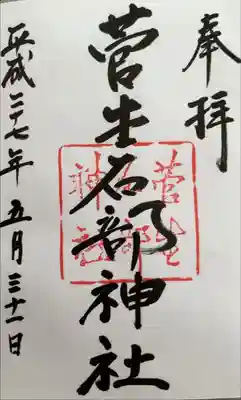 奉拝
菅生石部神社
平成二十七年五月三十一日
菅生石部神社